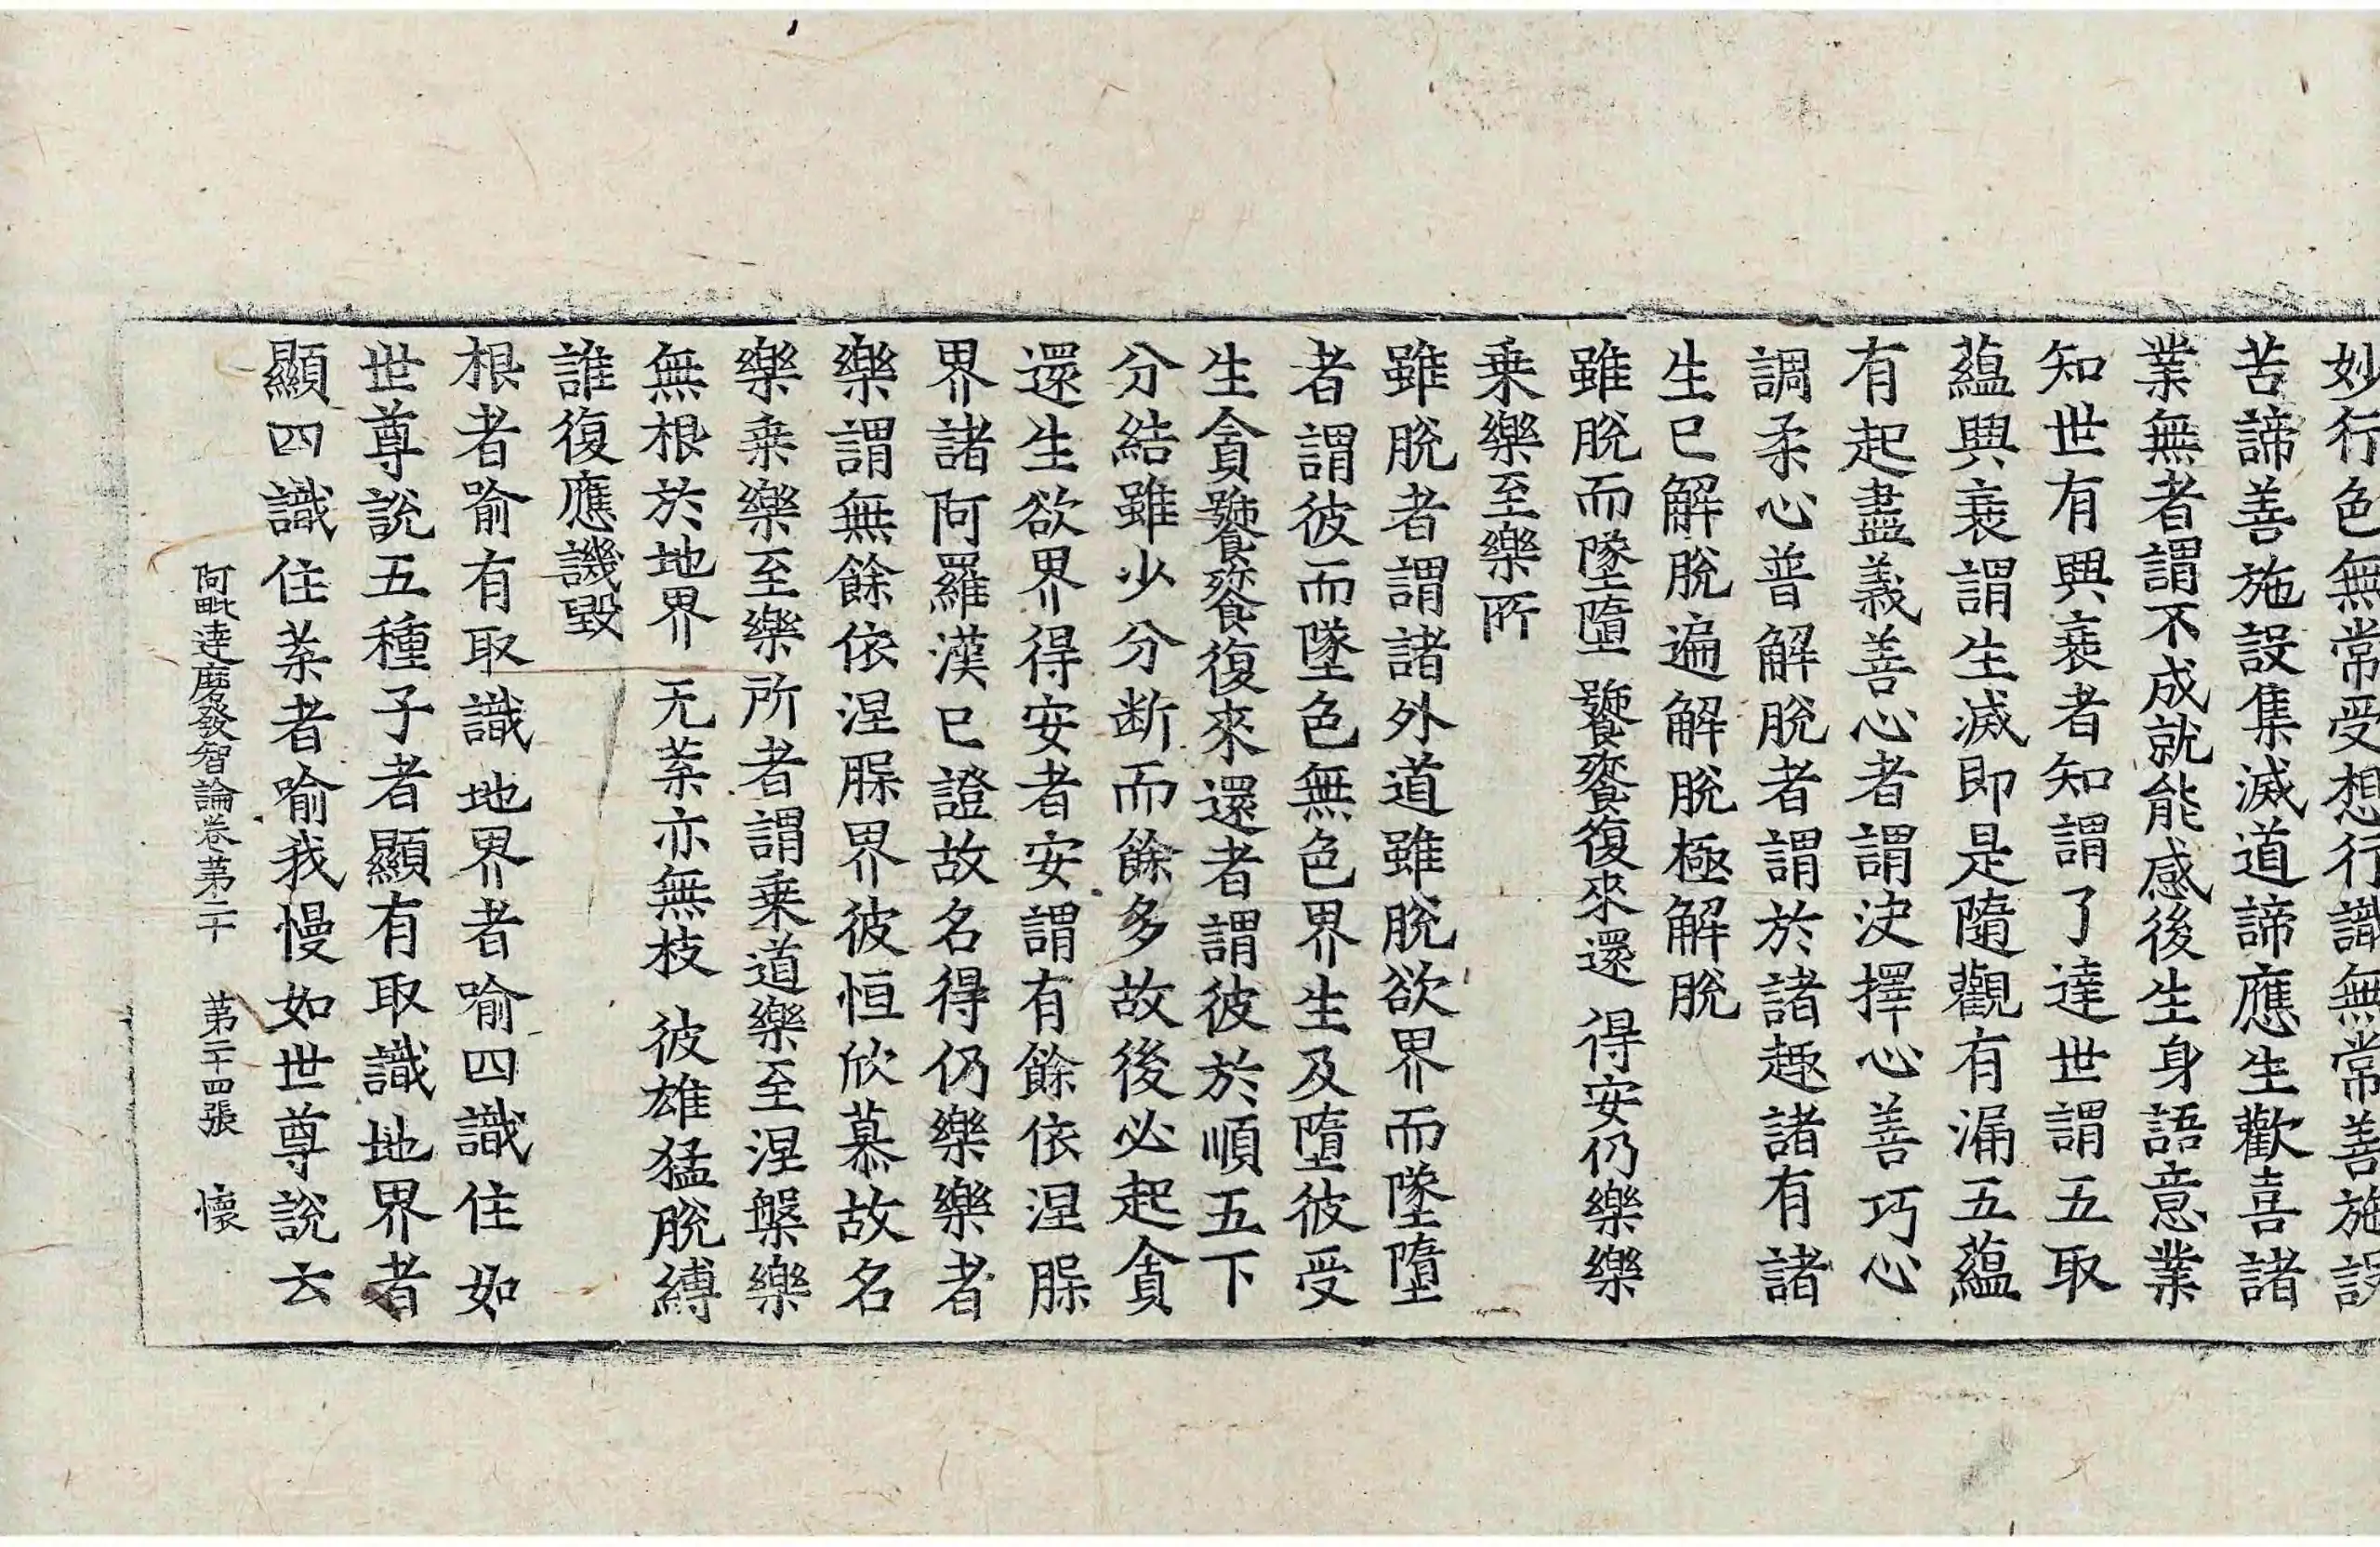 妙行色無常受想行識無常善施設
苦諦善施設集滅道諦應生歡喜諸
業無者謂不成就能感後生身語意業
知世有興衰者知謂了達世謂五取
蘊興衰謂生滅即是隨觀有漏五蘊
有起盡義善心者謂決擇心善巧心
調柔心普解脫者謂於諸趣諸有諸
生已解脫遍解脫極解脫
雖脫而墜墮 饕餮復來還 得安仍樂樂
乗樂至樂所
雖脫者謂諸外道雖脫欲界而墜墮
者謂彼而墜色無色界生及墮彼受
生貪饕餮復來還者謂彼於順五下
分結雖少分斷而餘多故後必起貪
還生欲界得安者安謂有餘依涅槃
界諸阿羅漢已證故名得仍樂樂者
樂謂無餘依涅槃界彼恒欣慕故名
樂乗樂至樂所者謂乗道樂至涅槃樂
無根於地界 无葉亦無枝 彼雄猛脫縛
誰復應譏毀
根者喻有取識地界者喻四識住如
世尊說五種子者顯有取識地界者
顯四識住葉者喻我慢如世尊說云
阿毗達磨發智論卷苐二十 苐二十四張 懷